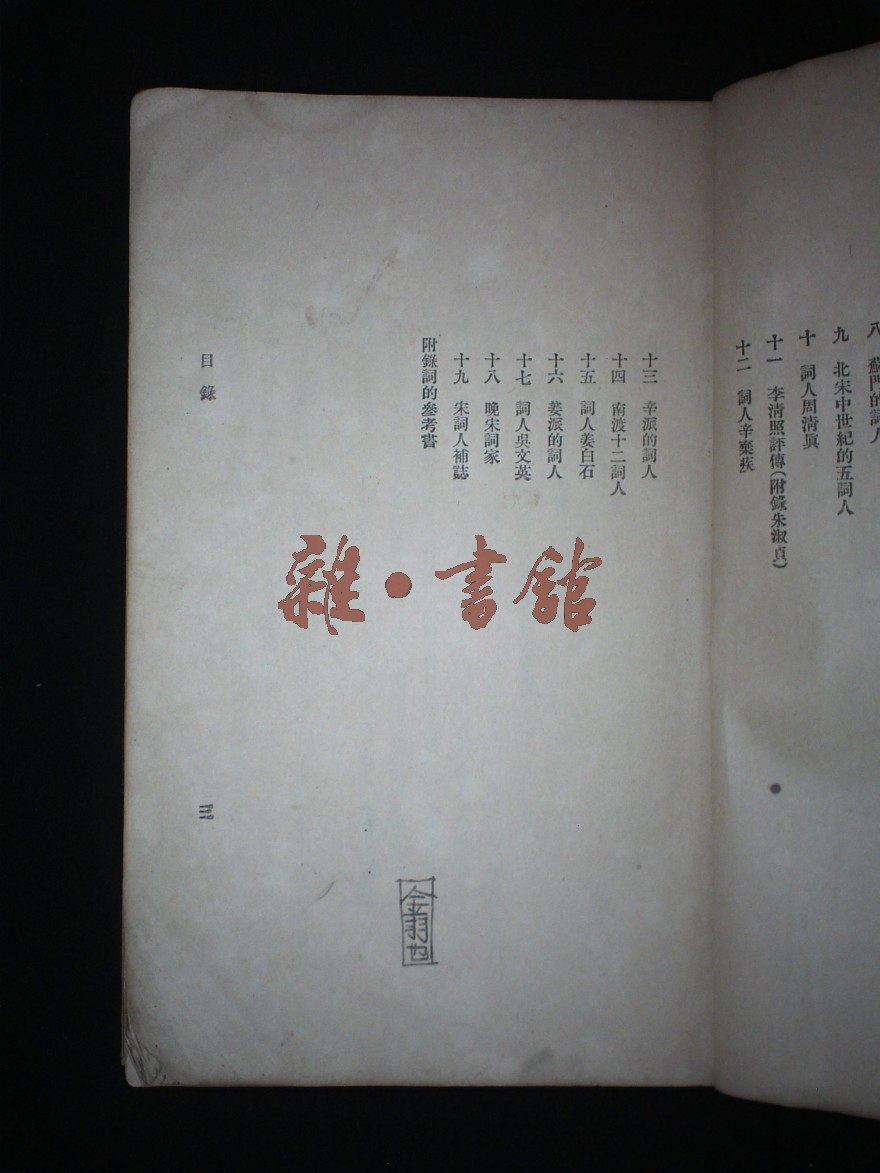 八 蘇門的詞人
九 北宋中世紀的五詞人
十 詞人周淸眞
十一 李淸照評傳(附錄朱淑貞)
十二 詞人辛棄疾
十三 辛派的詞人
十四 南渡十二詞人
十五 詞人姜白石
十六 姜派的詞人
十七 詞人吳文英
十八 晚宋詞家
十九 宋詞人補誌
附錄詞的參考書
目錄
三
雜·書館